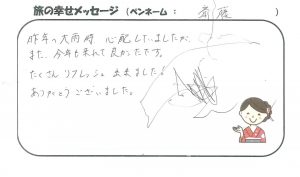 旅の幸せメッセージ (ペンネーム： 斎藤 )
昨年の大雨時 心配していましたが、
また、今年も来れて良かったです。
たくさんリフレッシュ出来ました！
ありがとうございました。